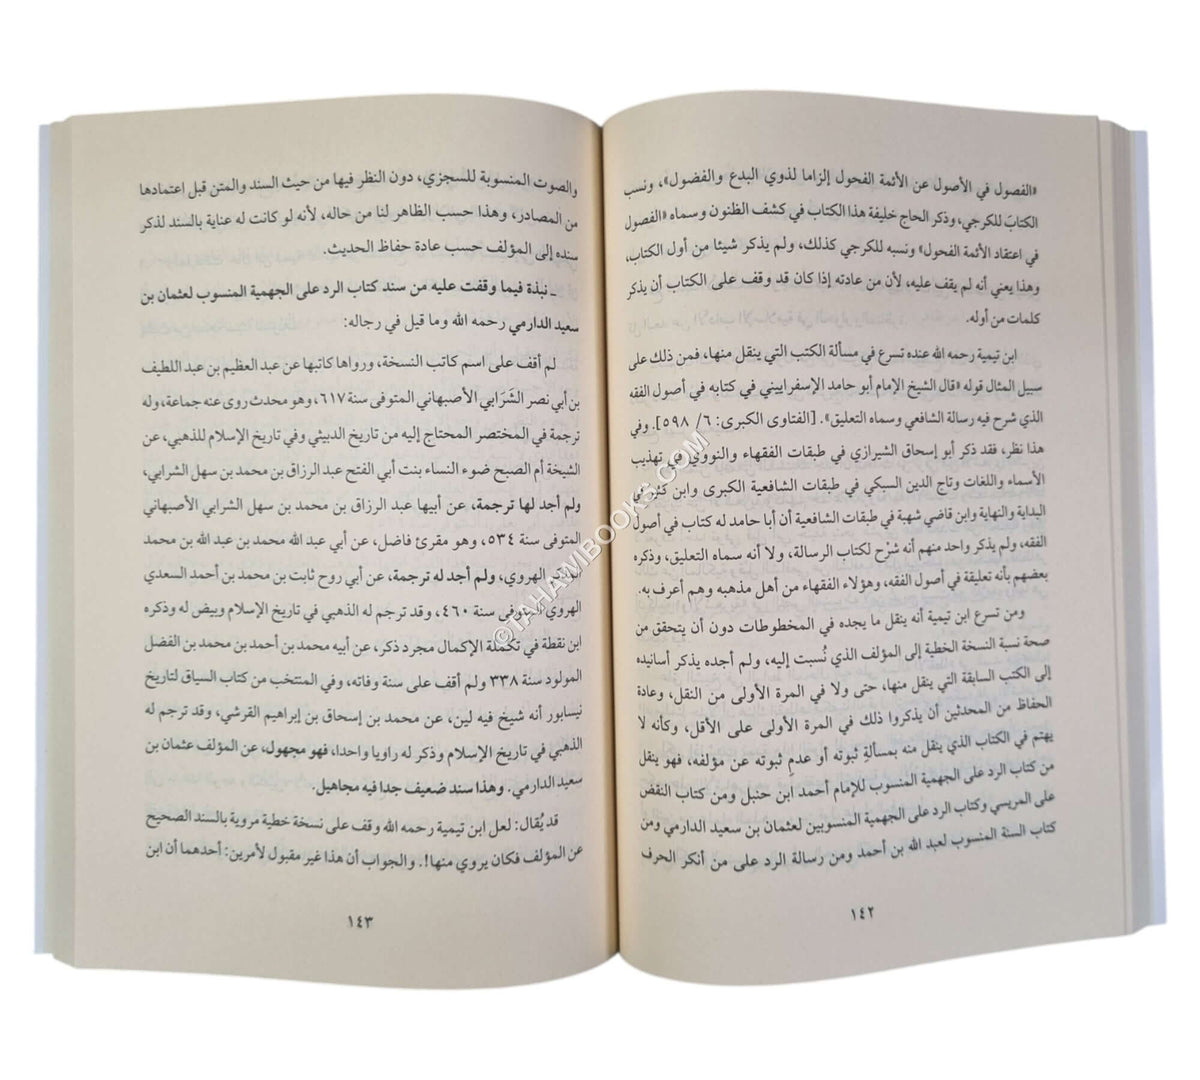 «الفصول في الأصول عن الأئمة الفحول إلزاما لذوي البدع والفضول»، ونسب
الكتاب للكرجي، وذكر الحاج خليفة هذا الكتاب في كشف الظنون وسماه «الفصول
في اعتقاد الأئمة الفحول» ونسبه للكرجي كذلك، ولم يذكر شيئا من أول الكتاب،
وهذا يعني أنه لم يقف عليه، لأن من عادته إذا كان قد وقف على الكتاب أن يذكر
كلمات من أوله.
ابن تيمية رحمه الله عنده تسرع في مسألة الكتب التي ينقل منها، فمن ذلك على
سبيل المثال قوله «قال الشيخ الإمام أبو حامد الإسفراييني في كتابه في أصول الفقه
الذي شرح فيه رسالة الشافعي وسماه التعليق». [الفتاوى الكبرى: ٦/ ٥٩٨]. وفي
هذا نظر، فقد ذكر أبو إسحاق الشيرازي في طبقات الفقهاء والنووي في تهذيب
الأسماء واللغات وتاج الدين السبكي في طبقات الشافعية الكبرى وابن كثير في
البداية والنهاية وابن قاضي شهبة في طبقات الشافعية أن أبا حامد له كتاب في أصول
الفقه، ولم يذكر واحد منهم أنه شرْح لكتاب الرسالة، ولا أنه سماه التعليق، وذكره
بعضهم بأنه تعليقة في أصول الفقه، وهؤلاء الفقهاء من أهل مذهبه وهم أعرف به.
ومن تسرع ابن تيمية أنه ينقل ما يجده في المخطوطات دون أن يتحقق من
صحة نسبة النسخة الخطية إلى المؤلف الذي نُسبت إليه، ولم أجده يذكر أسانيده
إلى الكتب السابقة التي ينقل منها، حتى ولا في المرة الأولى من النقل، وعادة
الحفاظ من المحدثين أن يذكروا ذلك في المرة الأولى على الأقل، وكأنه لا
يهتم في الكتاب الذي ينقل منه بمسألةِ ثبوته أو عدمِ ثبوته عن مؤلفه، فهو ينقل
من كتاب الرد على الجهمية المنسوب للإمام أحمد ابن حنبل ومن كتاب النقض
على المريسي وكتاب الرد على الجهمية المنسوبين لعثمان بن سعيد الدارمي ومن
كتاب السنة المنسوب لعبد الله بن أحمد ومن رسالة الرد على من أنكر الحرف
١٤٢
والصوت المنسوبة للسجزي، دون النظر فيها من حيث السند والمتن قبل اعتمادها
من المصادر، وهذا حسب الظاهر لنا من حاله، لأنه لو كانت له عناية بالسند لذكر
سنده إلى المؤلف حسب عادة حفاظ الحديث.
ـ نبذة فيما وقفت عليه من سند كتاب الرد على الجهمية المنسوب لعثمان بن
سعيد الدارمي رحمه الله وما قيل في رجاله:
لم أقف على اسم كاتب النسخة، ورواها كاتبها عن عبد العظيم بن عبد اللطيف
بن أبي نصر الشَرَابي الأصبهاني المتوفى سنة ٦١٧، وهو محدث روى عنه جماعة، وله
ترجمة في المختصر المحتاج إليه من تاريخ الدبيثي وفي تاريخ الإسلام للذهبي، عن
الشيخة أم الصبح ضوء النساء بنت أبي الفتح عبد الرزاق بن محمد بن سهل الشرابي،
ولم أجد لها ترجمة، عن أبيها عبد الرزاق بن محمد بن سهل الشرابي الأصبهاني
المتوفى سنة ٥٣٤، وهو مقرئ فاضل، عن أبي عبد الله محمد بن عبد الله بن محمد
الهروي، ولم أجد له ترجمة، عن أبي روح ثابت بن محمد بن أحمد السعدي
الهروي المتوفى سنة ٤٦٠، وقد ترجم له الذهبي في تاريخ الإسلام وبيض له وذكره
ابن نقطة في تكملة الإكمال مجرد ذكر، عن أبيه محمد بن أحمد بن محمد بن الفضل
المولود سنة ٣٣٨ ولم أقف على سنة وفاته، وفي المنتخب من كتاب السياق لتاريخ
نيسابور أنه شيخ فيه لين، عن محمد بن إسحاق بن إبراهيم القرشي، وقد ترجم له
الذهبي في تاريخ الإسلام وذكر له راويا واحدا، فهو مجهول، عن المؤلف عثمان بن
سعيد الدارمي. وهذا سند ضعيف جدا فيه مجاهيل.
قد يُقال: لعل ابن تيمية رحمه الله وقف على نسخة خطية مروية بالسند الصحيح
عن المؤلف فكان يروي منها!. والجواب أن هذا غير مقبول لأمرين: أحدهما أن ابن
١٤٣
©TAHAWIBOOKS.COM